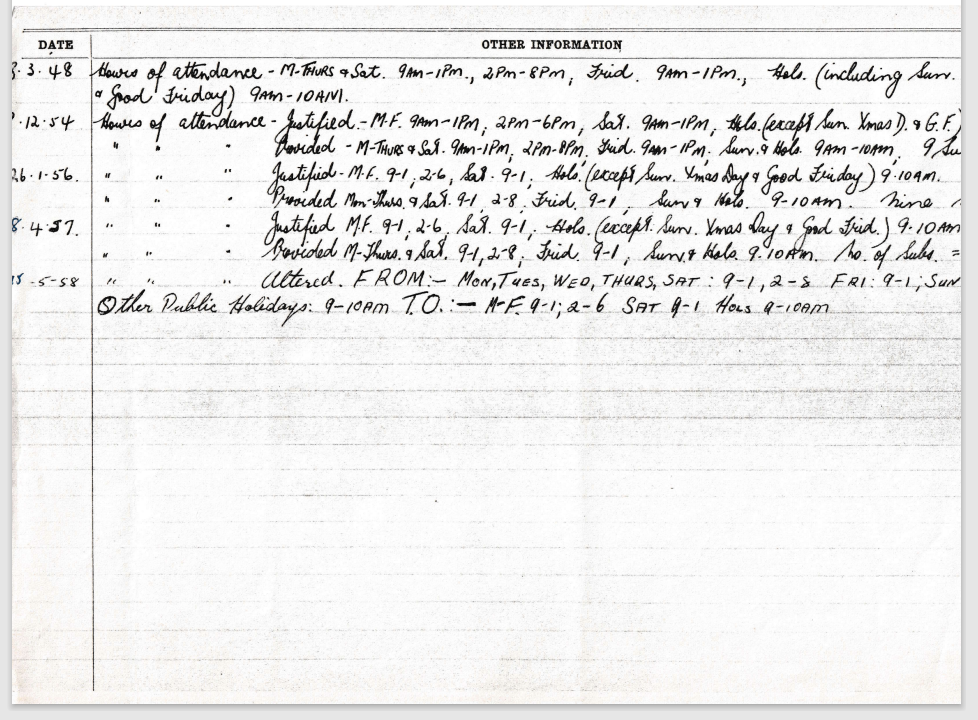 DATE OTHER INFORMATION
3.48 Hours of attendance - M-THURS & Sat. 9AM-1PM., 2PM-8PM, Frid. 9AM-1PM., Hols. (including Sun.
& Good Friday) 9AM-10AM.
.12.54 Hours of attendance - Justified - M.F. 9AM-1PM, 2PM-6PM, Sat. 9AM-1PM, Hols. (except Sun. Xmas D. & G.F.)
" " " Provided - M-THURS & Sat. 9AM-1PM, 2PM-8PM, Frid. 9AM-1PM. Sun. & Hols. 9AM-10AM, 9
26.1.56. " " " Justified - M.F. 9-1, 2-6, Sat. 9-1, Hols. (except Sun. Xmas Day & Good Friday) 9-10AM.
" " " Provided Mon-Thurs. & Sat. 9-1, 2-8, Frid. 9-1, Sun & Hols. 9-10AM. nine
8.4.57. " " " Justified M.F. 9-1, 2-6, Sat. 9-1, Hols. (except. Sun. Xmas Day & Good Frid.) 9-10AM
" " " Provided M-Thurs. & Sat. 9-1, 2-8, Frid. 9-1, Sun. & Hols. 9.10AM. No. of Subs. =
-5-58 " " " Altered. FROM:- MON, TUES, WED, THURS, SAT: 9-1, 2-8 FRI: 9-1; SUN
Other Public Holidays: 9-10AM T.O.:- M-F. 9-1; 2-6 SAT 9-1 HOLS 9-10AM